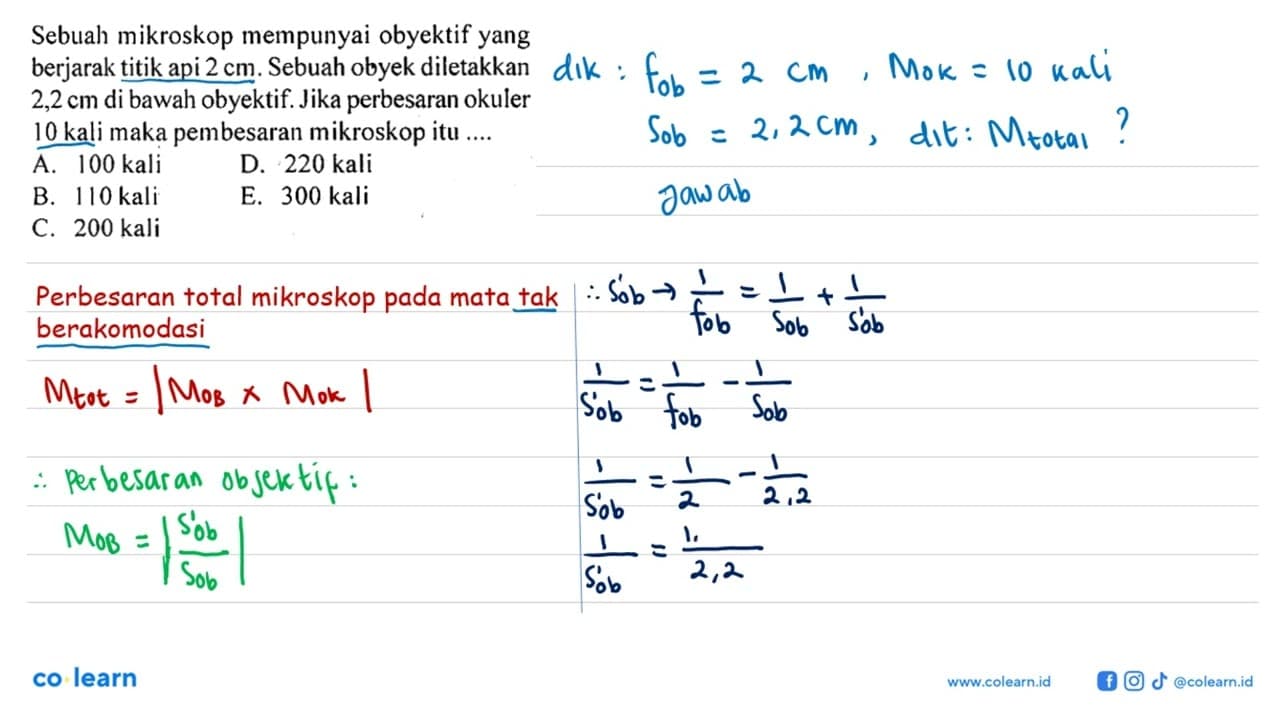 Sebuah mikroskop mempunyai obyektif yang
berjarak titik api 2 cm. Sebuah obyek diletakkan
2,2 cm di bawah obyektif. Jika perbesaran okuler
10 kali maka pembesaran mikroskop itu ....
A. 100 kali D. 220 kali
B. 110 kali E. 300 kali
C. 200 kali
dik : fob = 2 cm , Mok = 10 kali
Sob = 2,2 cm, dit : Mtotal ?
Jawab
Perbesaran total mikroskop pada mata tak
berakomodasi
Mtot = |MOB x Mok|
∴ Perbesaran objektif :
MOB = |S'ob/Sob|
∴ S'ob → 1/fob = 1/Sob + 1/S'ob
1/S'ob = 1/fob - 1/Sob
1/S'ob = 1/2 - 1/2,2
1/S'ob = 1./2,2
co learn
www.colearn.id
@colearn.id